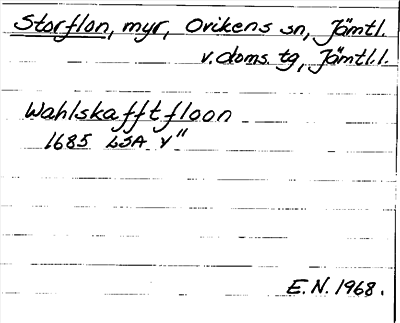 Storflon, myr, Ovikens sn, Jämtl.
v. doms. tg, Jämtl. l.
Wahlskafftfloon
1685 LSA Y"
E.N. 1968.